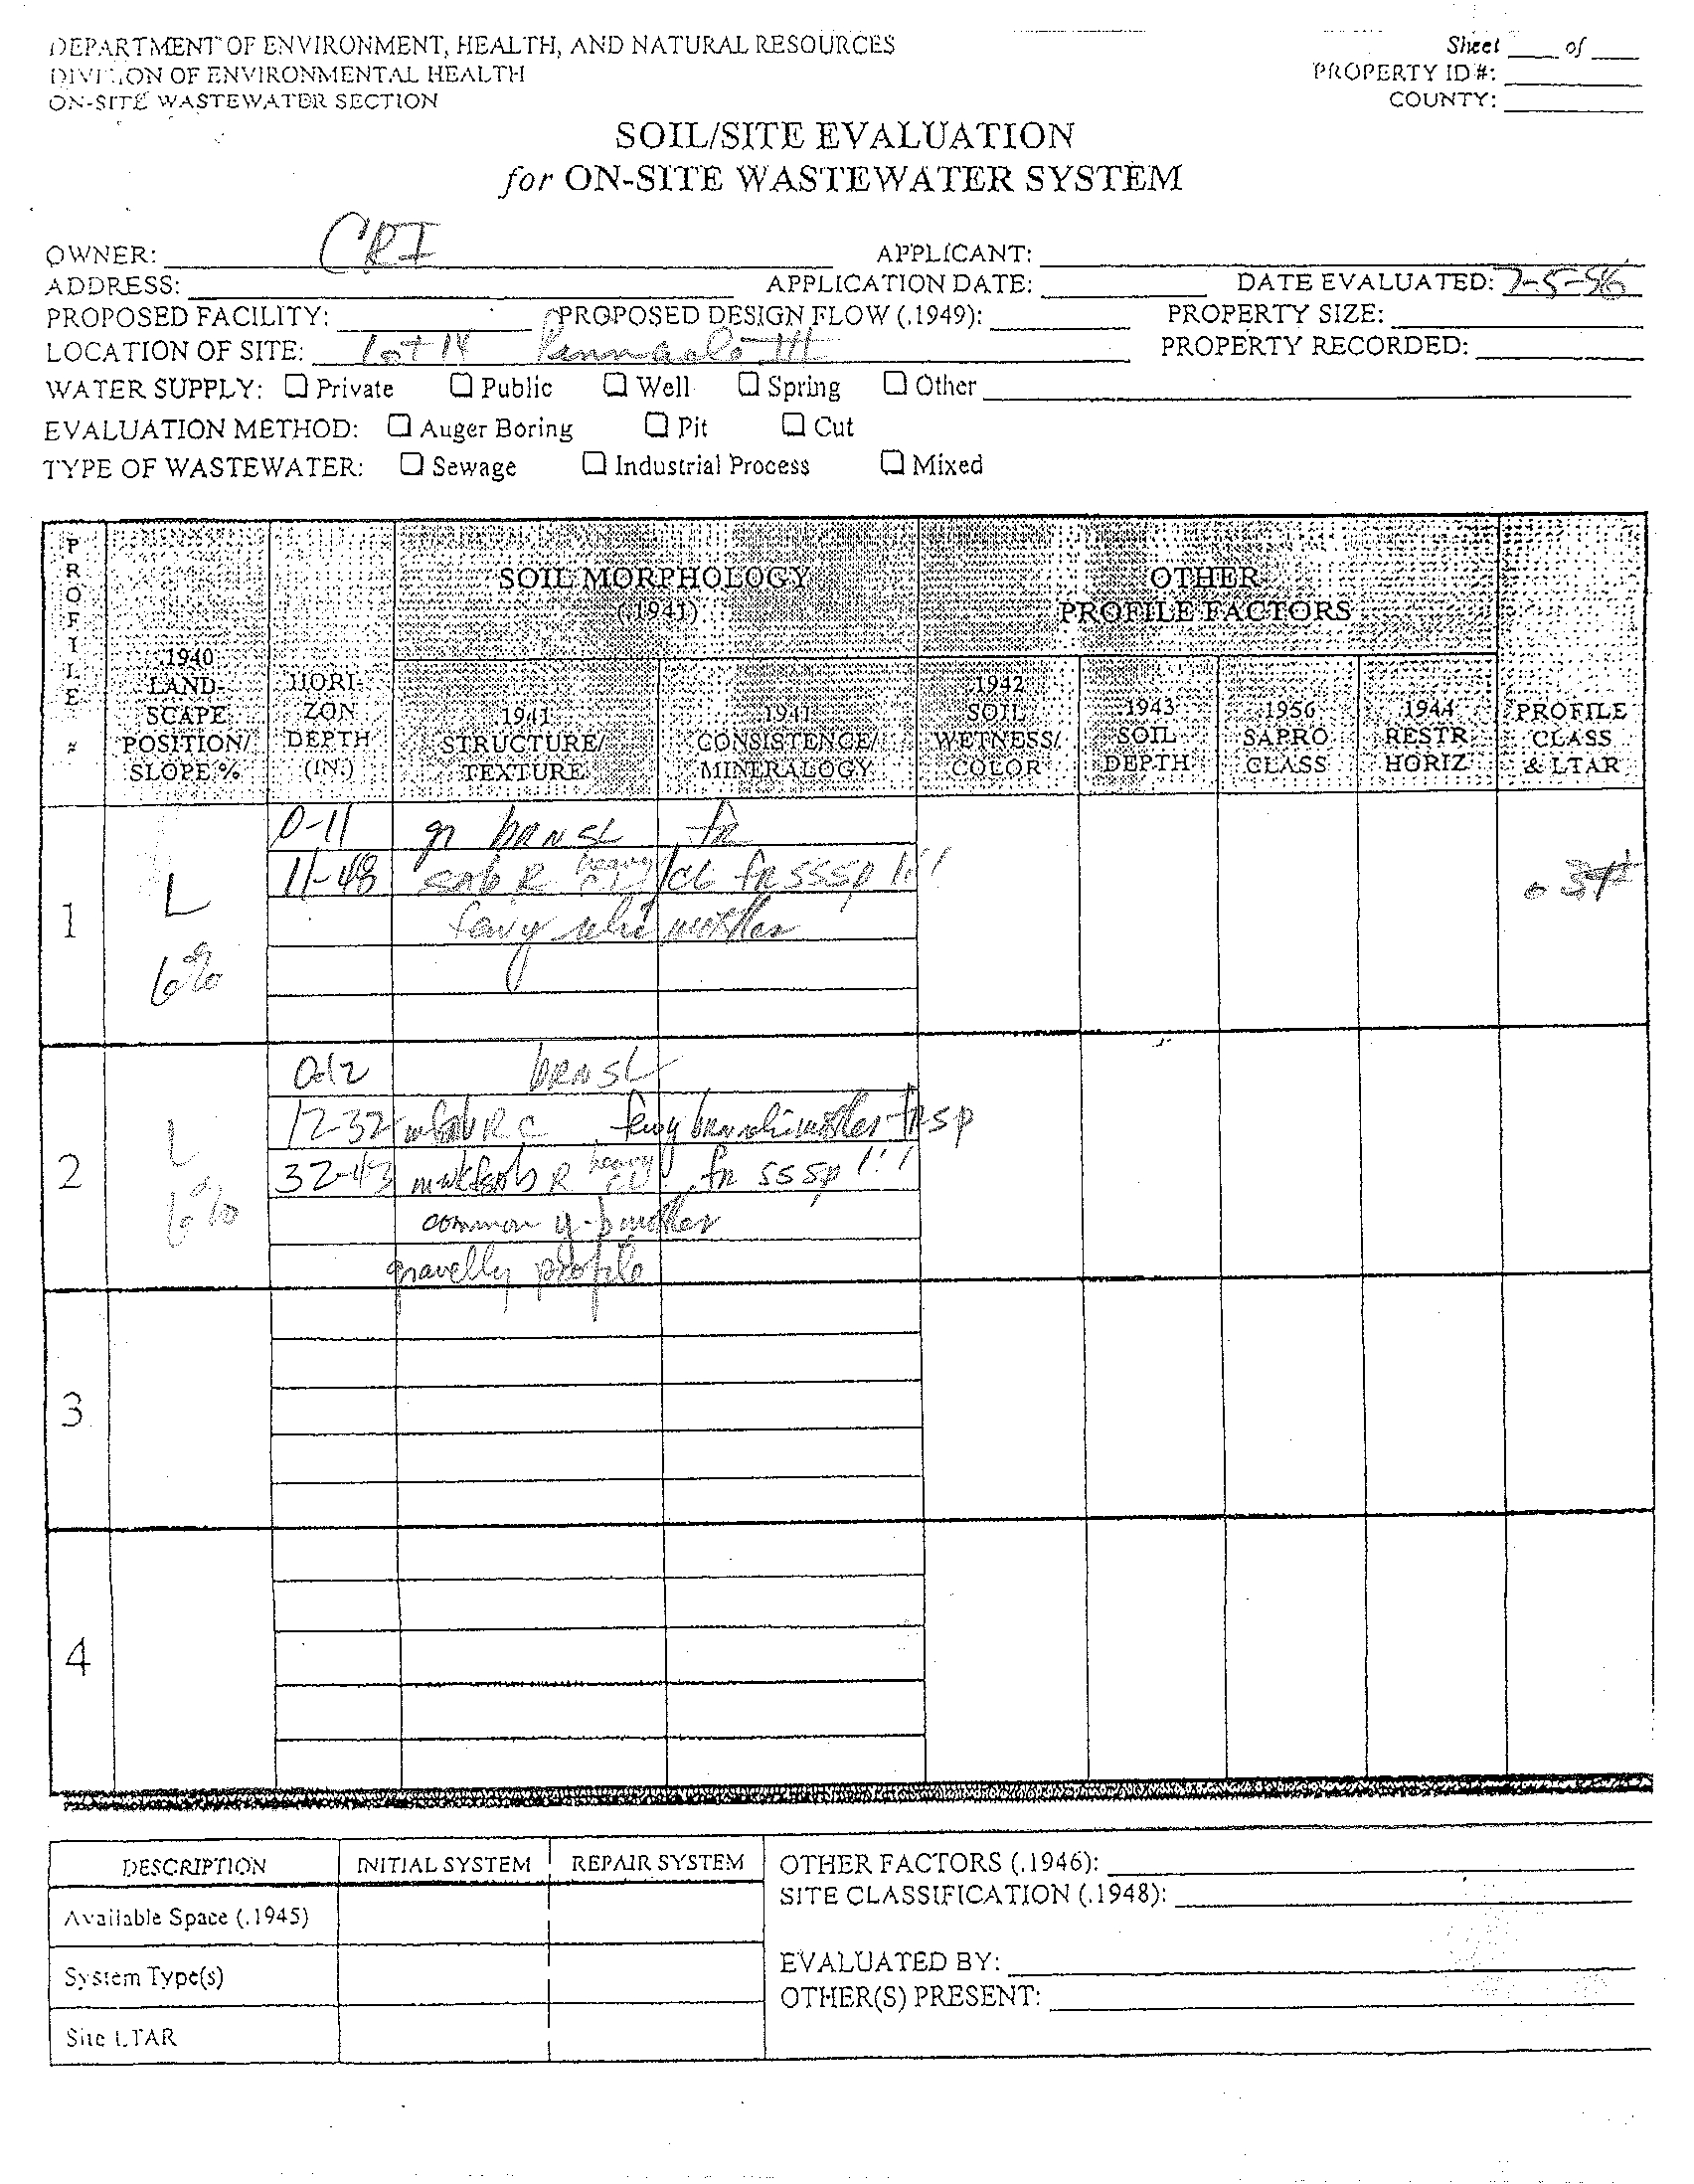 DEPARTMENT OF ENVIRONMENT, HEALTH, AND NATURAL RESOURCES
DIVISION OF ENVIRONMENTAL HEALTH
ON-SITE WASTEWATER SECTION
Sheet ____ of ____
PROPERTY ID #:
COUNTY:
SOIL/SITE EVALUATION
for ON-SITE WASTEWATER SYSTEM
OWNER: CRI APPLICANT:
ADDRESS: APPLICATION DATE: DATE EVALUATED: 7-5-96
PROPOSED FACILITY: PROPOSED DESIGN FLOW (.1949): PROPERTY SIZE:
LOCATION OF SITE: Lot 14 III PROPERTY RECORDED:
WATER SUPPLY: ☐ Private ☐ Public ☐ Well ☐ Spring ☐ Other
EVALUATION METHOD: ☐ Auger Boring ☐ Pit ☐ Cut
TYPE OF WASTEWATER: ☐ Sewage ☐ Industrial Process ☐ Mixed
PROFILE #
.1940 LAND-SCAPE POSITION/ SLOPE %
HORI-ZON DEPTH (IN.)
SOIL MORPHOLOGY (.1941)
.1941 STRUCTURE/ TEXTURE
.1941 CONSISTENCE/ MINERALOGY
OTHER PROFILE FACTORS
.1942 SOIL WETNESS/ COLOR
.1943 SOIL DEPTH
.1956 SAPRO CLASS
.1944 RESTR HORIZ
PROFILE CLASS & LTAR
1
L
6%
0-11 gr BRN SL fr
11-48 sab R heavy CL fr SSSP 1:1
mottles
2
L
6%
0-12 BRN SL
12-32 R C mottles fr SP
32-43 R heavy fr SS SP 1:1
common mottles
gravelly profile
3
4
DESCRIPTION INITIAL SYSTEM REPAIR SYSTEM
Available Space (.1945)
System Type(s)
Site LTAR
OTHER FACTORS (.1946):
SITE CLASSIFICATION (.1948):
EVALUATED BY:
OTHER(S) PRESENT: